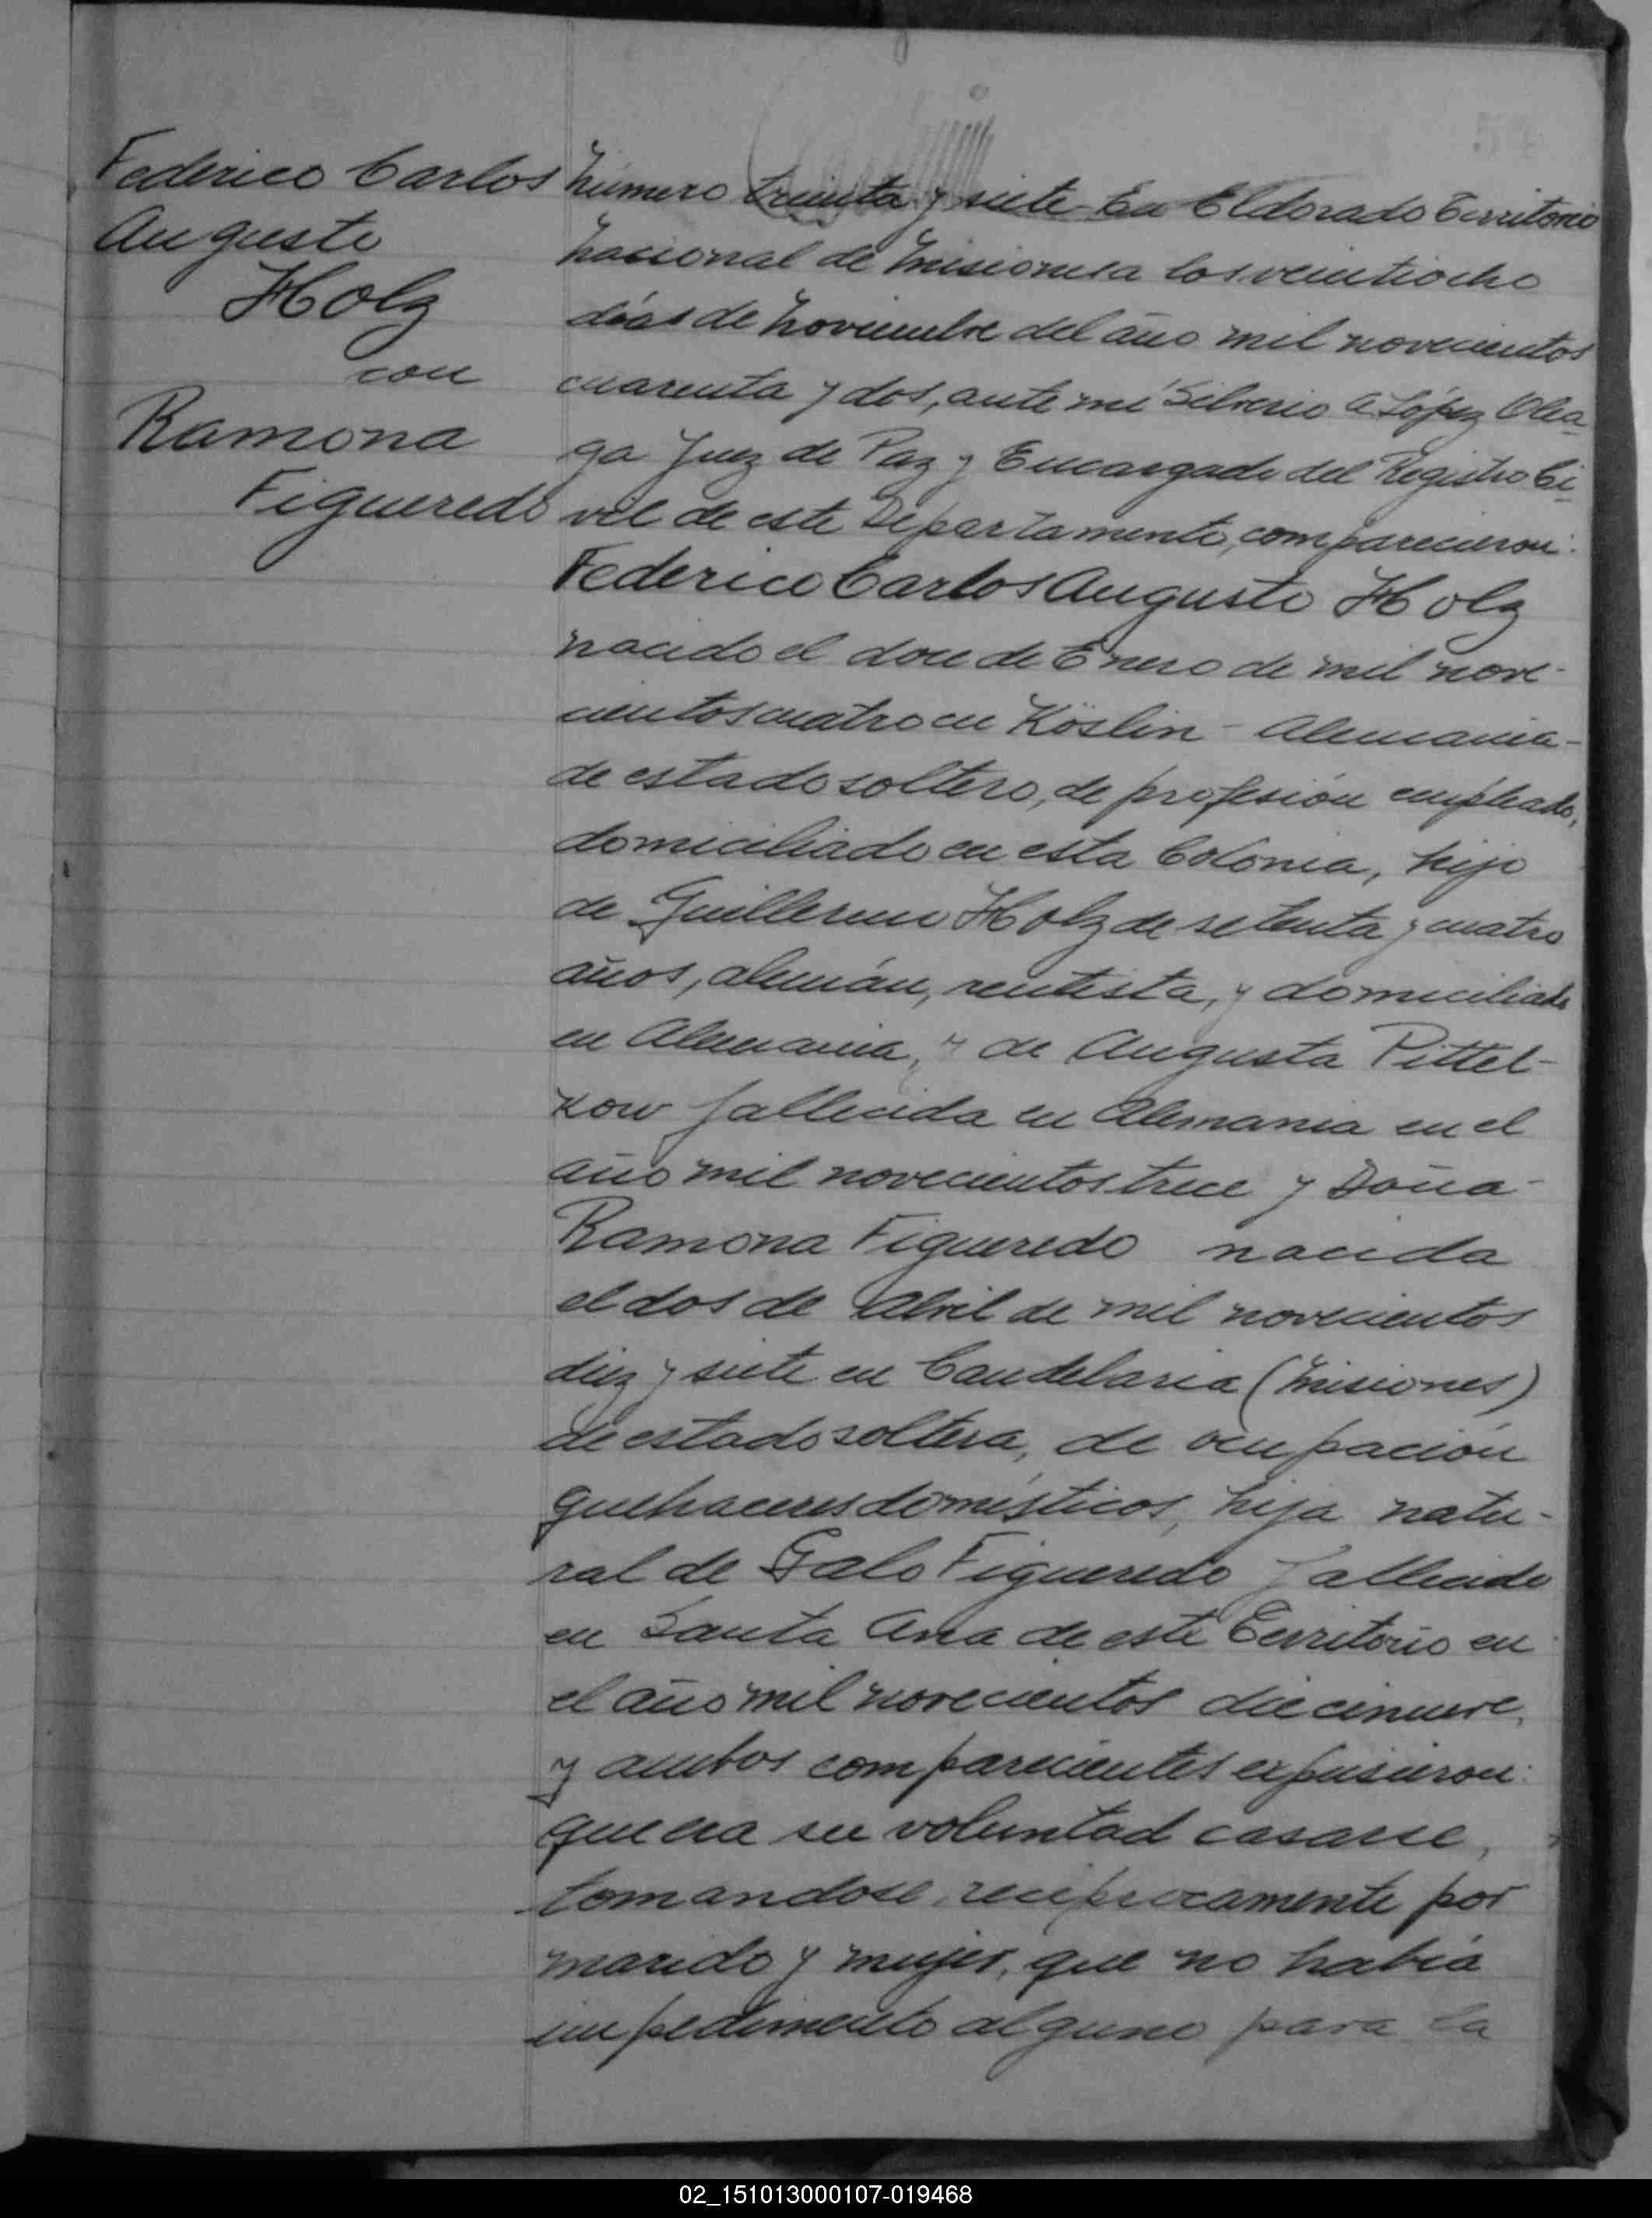 Federico Carlos
Augusto
Holz
con
Ramona
Figueredo
Número treinta y siete En Eldorado Territorio
Nacional de Misiones a los veintiocho
días de Noviembre del año mil novecientos
cuarenta y dos, ante mí Silverio López Olea
ga Juez de Paz y Encargado del Registro Ci
vil de este Departamento, comparecieron:
Federico Carlos Augusto Holz
nacido el doce de Enero de mil nove-
cientos cuatro en Köslin - Alemania -
de estado soltero, de profesión empleado,
domiciliado en esta Colonia, hijo
de Guillermo Holz de setenta y cuatro
años, alemán, rentista, y domiciliado
en Alemania, y de Augusta Pittel-
kow fallecida en Alemania en el
año mil novecientos trece y Doña
Ramona Figueredo nacida
el dos de Abril de mil novecientos
diez y siete en Candelaria (Misiones)
de estado soltera, de ocupación
quehaceres domésticos, hija natu-
ral de Galo Figueredo fallecido
en Santa Ana de este Territorio en
el año mil novecientos diecinueve,
y ambos comparecientes expusieron:
que era su voluntad casarse,
tomandose reciprocamente por
marido y mujer, que no había
impedimento alguno para la
02_151013000107-019468